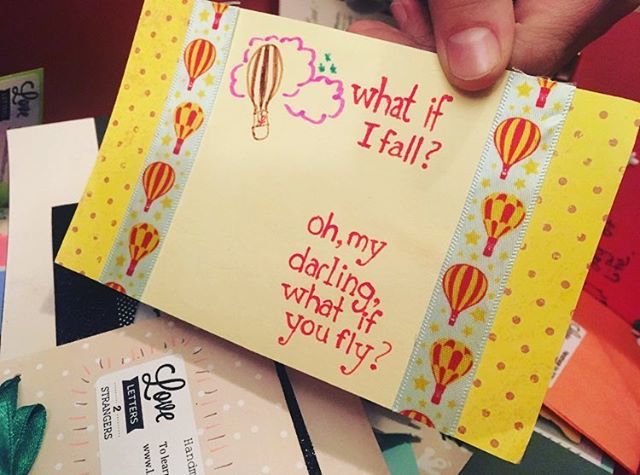 what if
I fall?
oh, my
darling,
what if
you fly?
Love
LETTERS
2
STRANGERS
Love
LETTERS
Handm
To lear
www.l